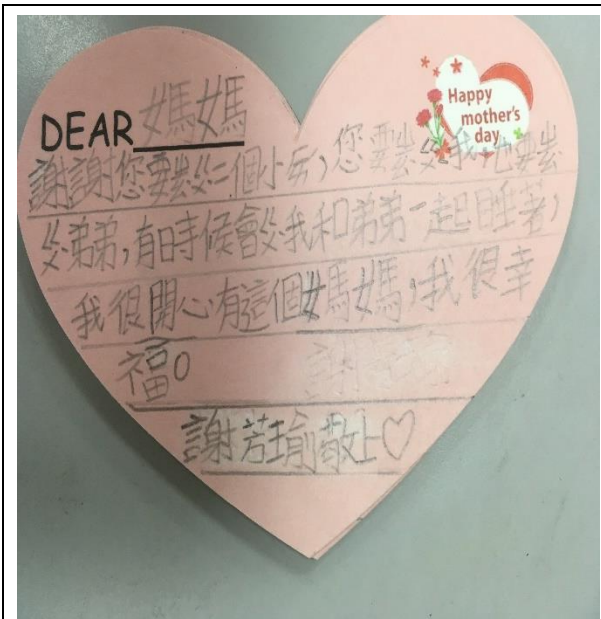 DEAR 媽媽
Happy
mother's
day
謝謝您要ㄓㄠㄍㄨ二個小,您要ㄓㄠㄍㄨ我,也要ㄓㄠ
ㄍㄨ弟弟,有時候會我和弟弟一起睡著,
我很開心有這個媽媽,我很幸
福。
謝若瑜敬上♡